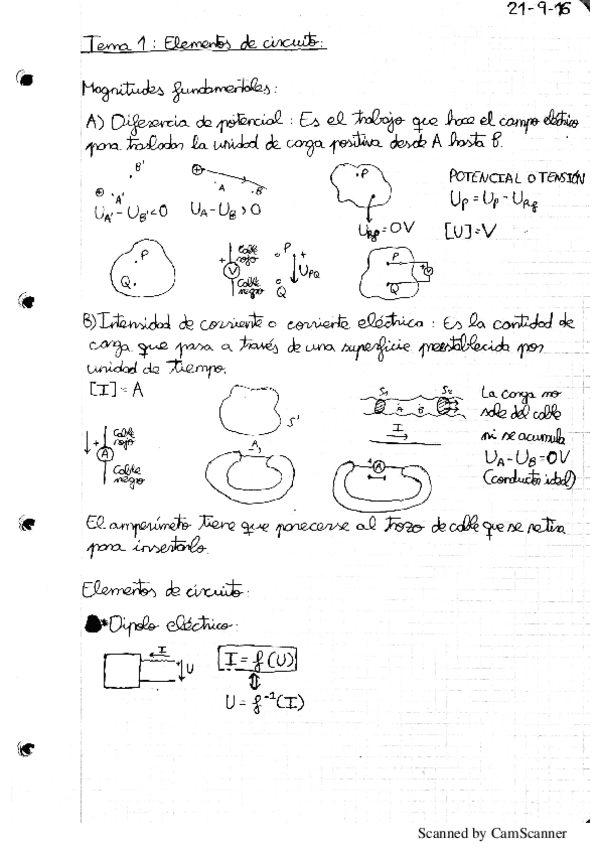 21-9-16
Tema 1: Elementos de circuito:
Magnitudes fundamentales:
A) Diferencia de potencial: Es el trabajo que hace el campo eléctrico
para trasladar la unidad de carga positiva desde A hasta B.
B'
A'
U_A' - U_B' < 0
A
B
U_A - U_B > 0
P
U_Rf = 0V
POTENCIAL O TENSIÓN
U_P = U_P - U_Rf
[U] = V
P
Q
Cable rojo
+
V
Cable negro
P
Q
+
U_PQ
P
Q
+
V
B) Intensidad de corriente o corriente eléctrica: Es la cantidad de
carga que pasa a través de una superficie preestablecida por
unidad de tiempo.
[I] = A
+
Cable rojo
A
Cable negro
S'
A
S1
S2
A
B
I
A
La carga no
sale del cable
ni se acumula
U_A - U_B = 0V
(conductor ideal)
El amperímetro tiene que parecerse al trozo de cable que se retira
para insertarlo.
Elementos de circuito:
* Dipolo eléctrico:
I
U
I = f(U)
U = f⁻¹(I)
Scanned by CamScanner